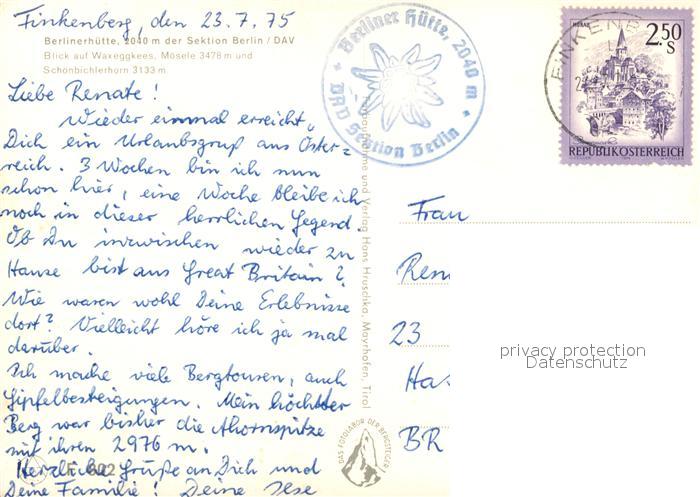 Finkenberg, den 23.7.75
Berlinerhütte, 2040 m der Sektion Berlin / DAV
Blick auf Waxeggkees, Mösele 3478 m und
Schönbichlerhorn 3133 m.
Liebe Renate!
Wieder einmal erreicht
Dich ein Urlaubsgruß aus Öster=
reich. 3 Wochen bin ich nun
schon hier, eine Woche bleibe ich
noch in dieser herrlichen Gegend.
Ob Du inzwischen wieder zu
Hause bist aus Great Britain?
Wie waren wohl Deine Erlebnisse
dort? Vielleicht höre ich ja mal
darüber.
Ich mache viele Bergtouren, auch
Gipfelbesteigungen. Mein höchster
Berg war bisher die Ahornspitze
mit ihren 2976 m.
Herzliche Grüße an Dich und
Deine Familie! Deine Ilse
Berliner Hütte, 2040 m
DAV Sektion Berlin
und Verlag Hans Hruschka, Mayrhofen, Tirol
DAS FOTOLABOR DER BERGSTEIGER
FINKENB
2.50
S
REPUBLIK ÖSTERREICH
Frau
Ren
23
Ha
BR
privacy protection
Datenschutz